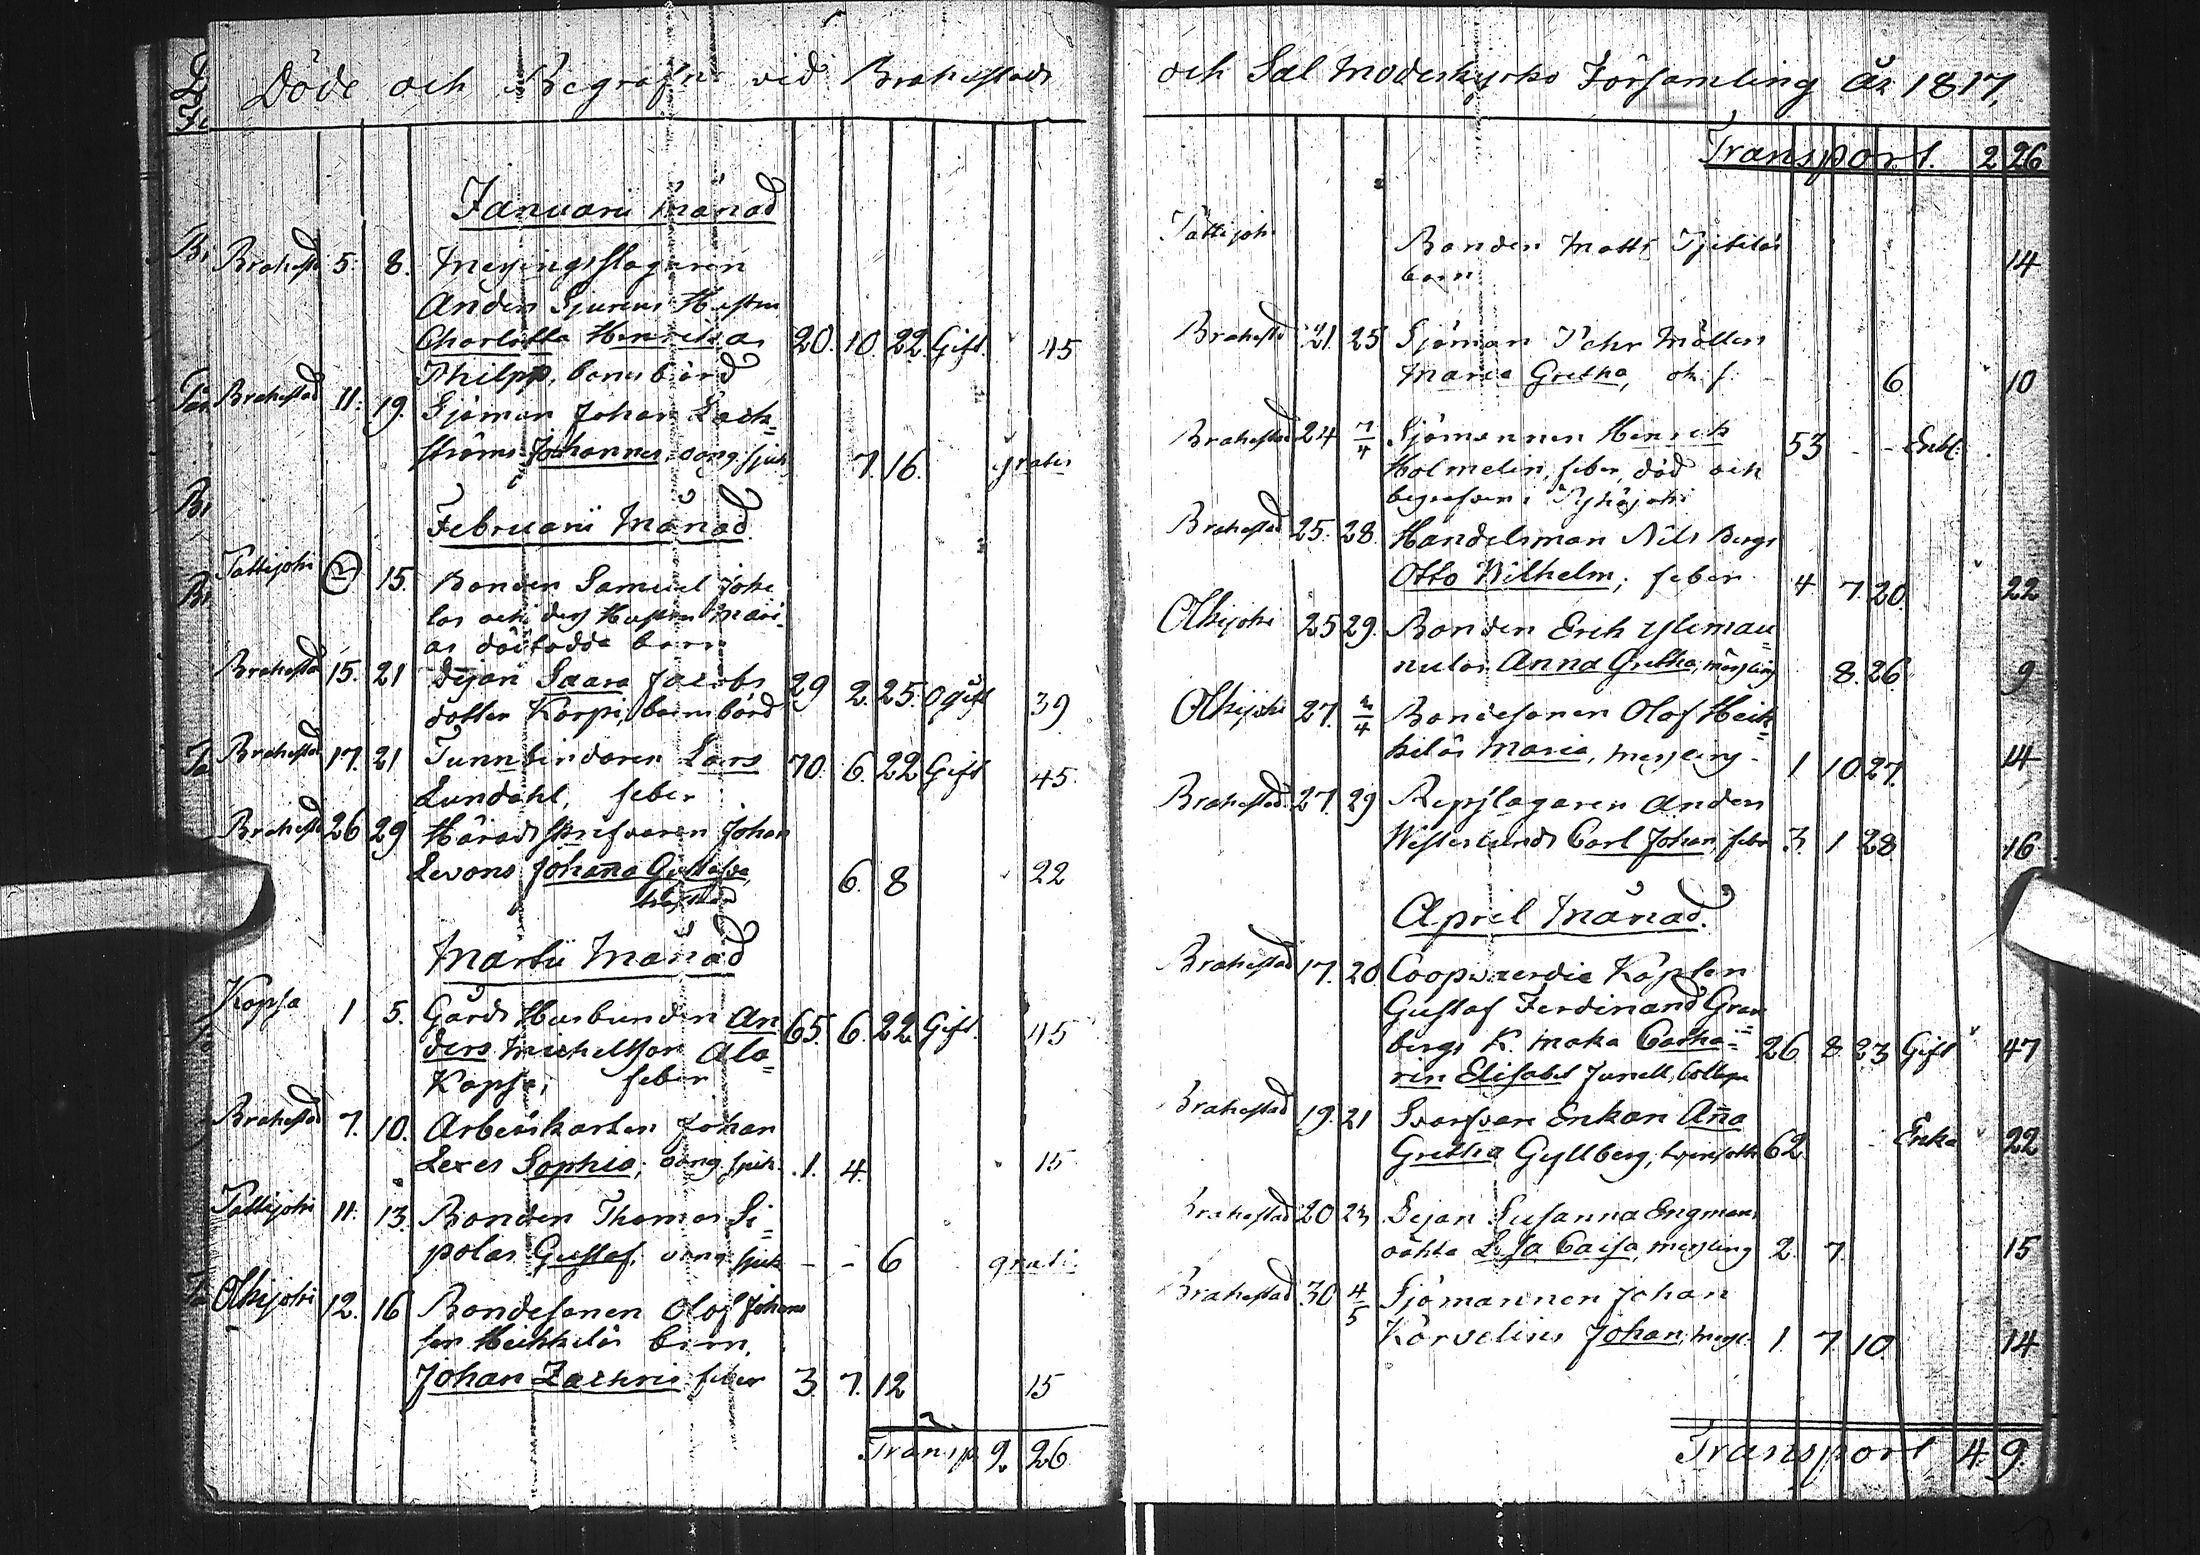 Döde och Begrafne vid Brahestads
Januarii Månad
Brahestd 5. 8. Messingsslagaren
Anders Sjurens Hustru
Charlotta Henrica 20. 10. 22. Gift. 45
Philpp, barnsbörd
Brahestad 11. 19. Sjöman Johan Lack=
ströms Johannes, bang sjuk 7. 16. gratis
Februarii Månad
Pattijoki 15. Bonden Samuel Joke
las och dess Hustru Mari
as dödfödda barn
Brahestad 15. 21 Pigan Saara Jacobs 29 2. 25. Ogift 39
dotter Korpi, barnsbörd
Brahestad 17. 21 Tunnbindaren Lars 70. 6. 22 Gift 45.
Lundahl, feber
Brahestd 26 29 Härads skrifvaren Johan
Levons Johaña Gustafva, 6. 8 22
Martii Månad
Kopsa 1 5. Gårds Husbunden An 65. 6. 22. Gift. 45
ders Michelsson Ala=
Kopsa; feber
Brahestad 7. 10. Arbetskarlen Johan
Lexes Sophia; bang sjuk. 1. 4. 15
Pattijoki 11. 13. Bonden Thomas Si=
polas Gustaf, bang sjuk - - 6 gratis
Olkijoki 12. 16 Bondesonen Olof Johans
son Heikkiläs barn,
Johan Zachris feber 3. 7. 12 15
Transp. 2. 26
och Sal Moderkyrko Församling År 1817,
Transport. 2 26
Pattijoki Bonden Matts 14
barn
Brahestd 21. 25 Sjöman Pehr Möllers
Maria Gretha, ok. s. 6 10
Brahestad 24 7/4 Sjömannen Henrik 53 - - Enkl.
Holmelin, feber, död och
begrafven i Pyhäjoki
Brahestad 25. 28. Handelsman Nils Bergs
Otto Wilhelm; feber 4 7. 20. 22
Olkijoki 25 29. Bonden Erik Ylimau=
nulas Anna Gretha, mässling 8. 26. 9
Olkijoki 27. 2/4 Bondesonen Olof Heik=
kiläs Maria, messling 1 10 27. 14
Brahestad 27. 29 Repslagaren Anders
Westerlunds Carl Johan, feber 3. 1 28 16
April Månad.
Brahestad 17. 20 Coopvaerdie Kapten
Gustaf Ferdinand Gran=
bergs K. maka Catha= 26 8. 23 Gift 47
rin Elisabet Junell,
Brahestad 19. 21 Svarfvar Enkan Aña
Gretha Gyllberg, 62. Enka 22
Brahestad 20 23 Pigan Susanna Engmans
oächta Lisa Caisa, messling 2. 7. 15
Brahestad 30 4/5 Sjömannen Johan
Körvelins Johan, messl. 1 7 10. 14
Transport 4. 9.